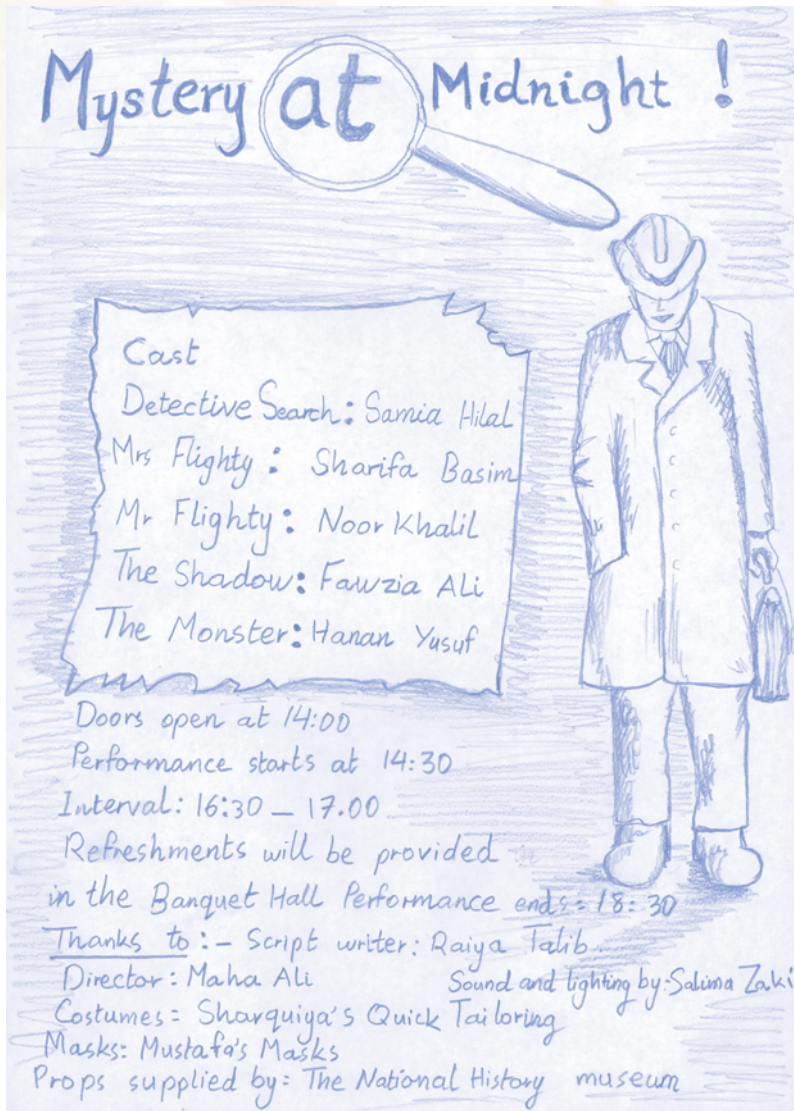 Mystery at Midnight !
Cast
Detective Search: Samia Hilal
Mrs Flighty: Sharifa Basim
Mr Flighty: Noor Khalil
The Shadow: Fawzia Ali
The Monster: Hanan Yusuf
Doors open at 14:00
Performance starts at 14:30
Interval: 16:30 – 17.00
Refreshments will be provided
in the Banquet Hall Performance ends: 18:30
Thanks to:- Script writer: Raiya Talib
Director: Maha Ali Sound and lighting by:-Salima Zaki
Costumes: Sharquiya's Quick Tailoring
Masks: Mustafa's Masks
Props supplied by: The National History museum